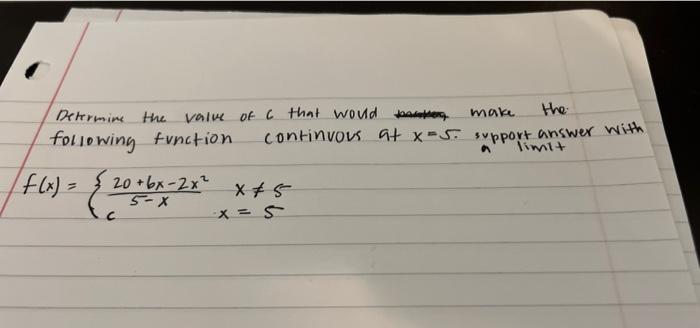 Determine the value of c that would make the
following function continuous at x=5. support answer with
a limit
f(x) = { 20+6x-2x² / 5-x x ≠ 5
c x = 5